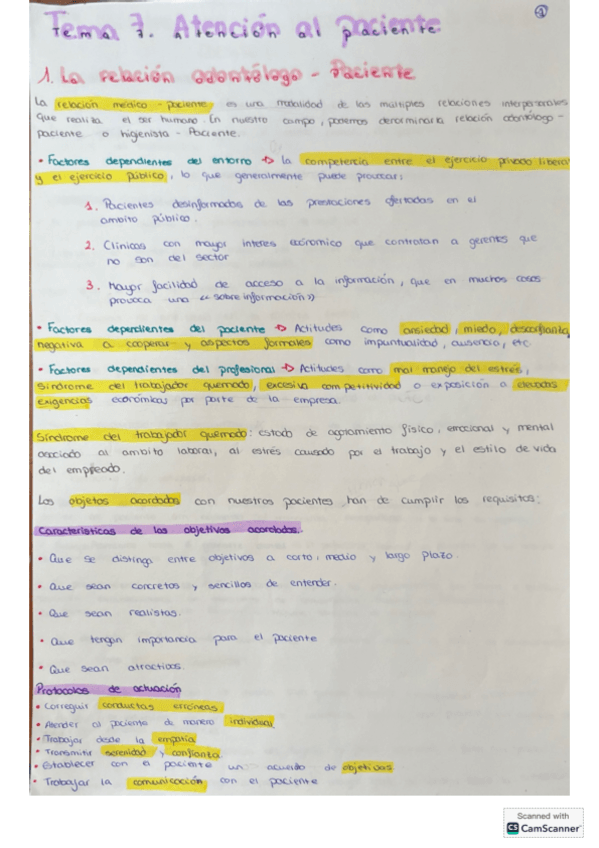 ②
Tema 7. Atención al paciente
1. La relación odontólogo - Paciente
La relación médico - paciente es una modalidad de las múltiples relaciones interpersonales
que realiza el ser humano. En nuestro campo, podemos denominarla relación odontólogo -
paciente o higienista - Paciente.
• Factores dependientes del entorno → La competencia entre el ejercicio privado liberal
y el ejercicio público, lo que generalmente puede provocar:
1. Pacientes desinformados de las prestaciones ofertadas en el
ámbito público.
2. Clínicas con mayor interés económico que contratan a gerentes que
no son del sector
3. Mayor facilidad de acceso a la información, que en muchos casos
provoca una << sobre información >>
• Factores dependientes del paciente → Actitudes como ansiedad, miedo, desconfianza,
negativa a cooperar y aspectos formales como impuntualidad, ausencia, etc.
• Factores dependientes del profesional → Actitudes como mal manejo del estrés,
Síndrome del trabajador quemado, excesiva competitividad o exposición a elevadas
exigencias económicas por parte de la empresa.
Síndrome del trabajador quemado: estado de agotamiento físico, emocional y mental
asociado al ámbito laboral, al estrés causado por el trabajo y el estilo de vida
del empleado.
Los objetos acordados con nuestros pacientes han de cumplir los requisitos:
Características de los objetivos acordados.
• Que se distinga entre objetivos a corto, medio y largo plazo.
• Que sean concretos y sencillos de entender.
• Que sean realistas.
• Que tengan importancia para el paciente
• Que sean atractivos.
Protocolos de actuación
• Corregir conductas erróneas
• Atender al paciente de manera individual
• Trabajar desde la empatía
• Transmitir serenidad y confianza
• Establecer con el paciente un acuerdo de objetivos
• Trabajar la comunicación con el paciente
Scanned with
CS CamScanner